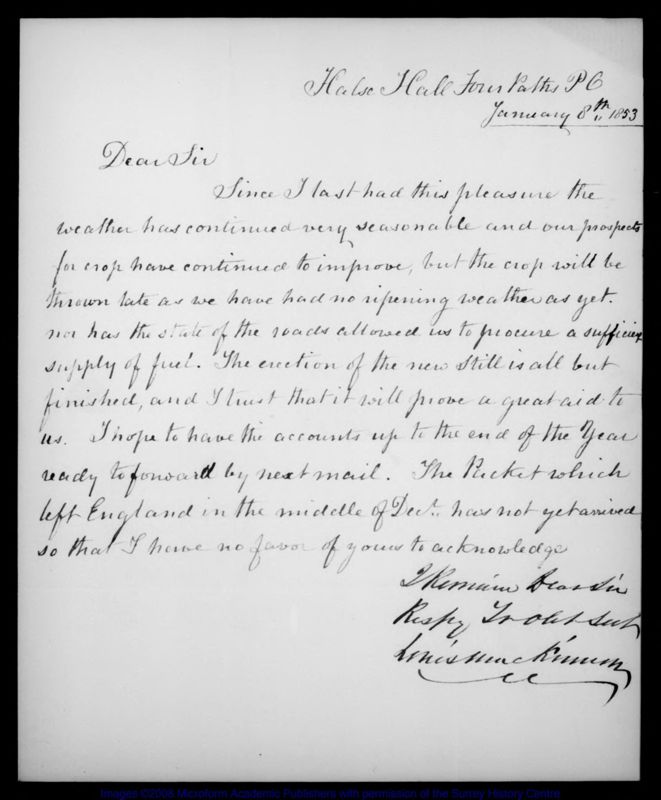 Halse Hall Four Paths P O
January 8th 1853
Dear Sir
Since I last had this pleasure the
weather has continued very seasonable and our prospects
for crop have continued to improve, but the crop will be
thrown late as we have had no ripening weather as yet.
nor has the state of the roads allowed us to procure a sufficient
supply of fuel. The erection of the new Still is all but
finished, and I trust that it will prove a great aid to
us. I hope to have the accounts up to the end of the Year
ready to forward by next mail. The Packet which
left England in the middle of Decr. has not yet arrived
so that I have no favor of yours to acknowledge
I Remain Dear Sir
Respy Yr Obt Servt
Louis Mackinnon
Images ©2008 Microform Academic Publishers with permission of the Surrey History Centre